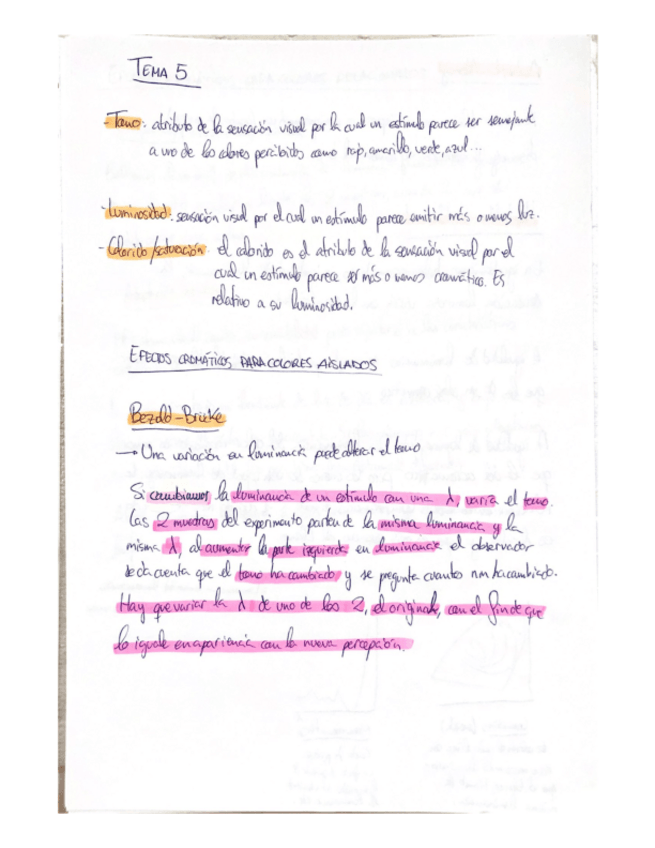 TEMA 5
- Tono: atributo de la sensación visual por la cual un estímulo parece ser semejante
a uno de los colores percibidos como rojo, amarillo, verde, azul...
- Luminosidad: sensación visual por el cual un estímulo parece emitir más o menos luz.
- Colorido/saturación: el colorido es el atributo de la sensación visual por el
cual un estímulo parece ser más o menos cromático. Es
relativo a su luminosidad.
EFECTOS CROMÁTICOS PARA COLORES AISLADOS
Bezold-Brücke
→ Una variación en luminancia puede alterar el tono
Si cambiamos la luminancia de un estímulo con una λ, varía el tono.
Las 2 muestras del experimento parten de la misma luminancia y la
misma λ, al aumentar la parte izquierda en luminancia el observador
se da cuenta que el tono ha cambiado y se pregunta cuantos nm ha cambiado.
Hay que variar la λ de uno de los 2, el original, con el fin de que
lo iguale en apariencia con la nueva percepción.